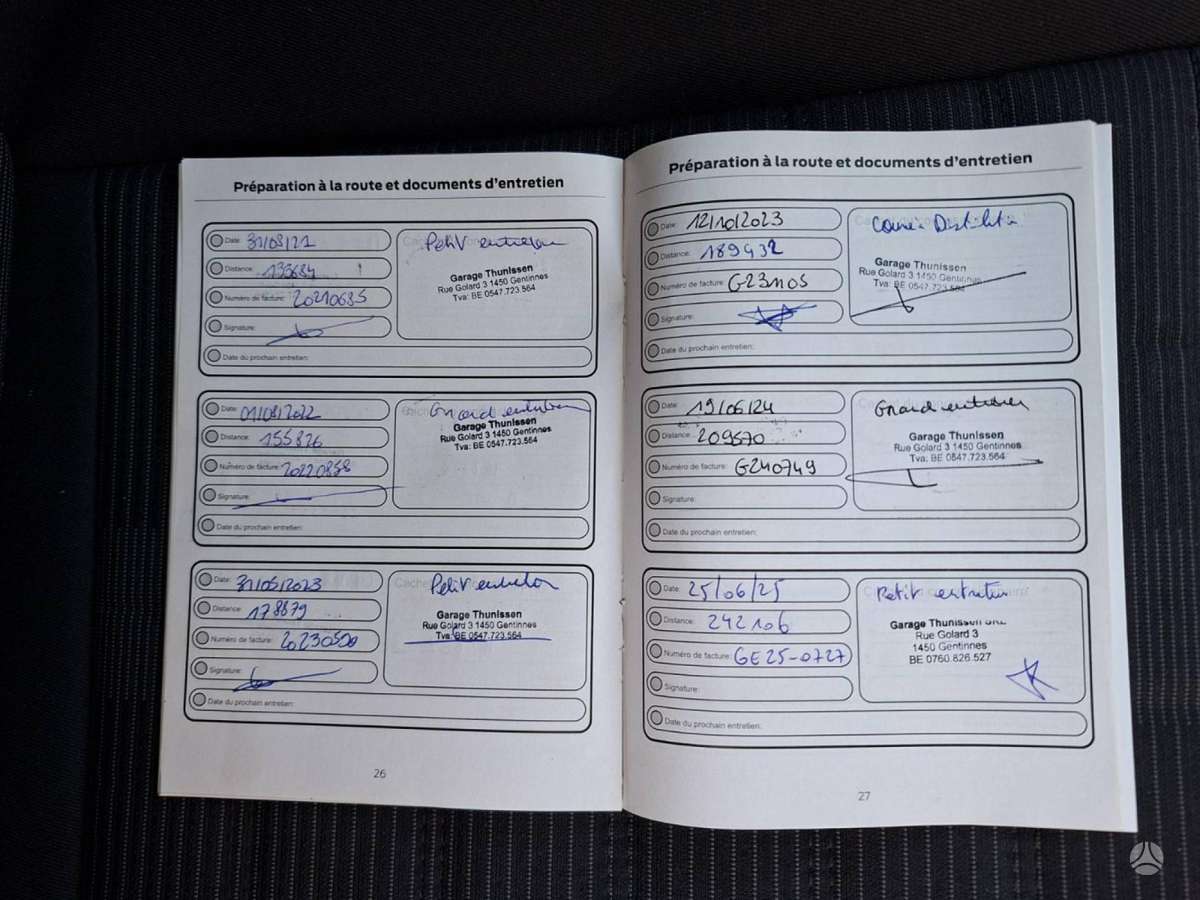 Préparation à la route et documents d'entretien
Date: 31/08/21
Petit entretien
Distance: 133684
Garage Thunissen
Rue Golard 3 1450 Gentinnes
Tva: BE 0547.723.564
Numéro de facture: 20210685
Signature:
Date du prochain entretien:
Date: 01/08/2022
Grand entretien
Distance: 155826
Garage Thunissen
Rue Golard 3 1450 Gentinnes
Tva: BE 0547.723.564
Numéro de facture: 20220858
Signature:
Date du prochain entretien:
Date: 31/05/2023
Petit entretien
Distance: 178879
Garage Thunissen
Rue Golard 3 1450 Gentinnes
Tva: BE 0547.723.564
Numéro de facture:
Signature:
Date du prochain entretien:
26
Préparation à la route et documents d'entretien
Date: 12/10/2023
Distance: 189432
Garage Thunissen
Rue Golard 3 1450 Gentinnes
Tva: BE 0547.723.564
Numéro de facture: G231105
Signature:
Date du prochain entretien:
Date: 19/06/24
Grand entretien
Distance: 209570
Garage Thunissen
Rue Golard 3 1450 Gentinnes
Tva: BE 0547.723.564
Numéro de facture: G240749
Signature:
Date du prochain entretien:
Date: 25/06/25
Petit entretien
Distance: 242106
Garage Thunissen SRL
Rue Golard 3
1450 Gentinnes
BE 0760.826.527
Numéro de facture: GE25-0727
Signature:
Date du prochain entretien:
27